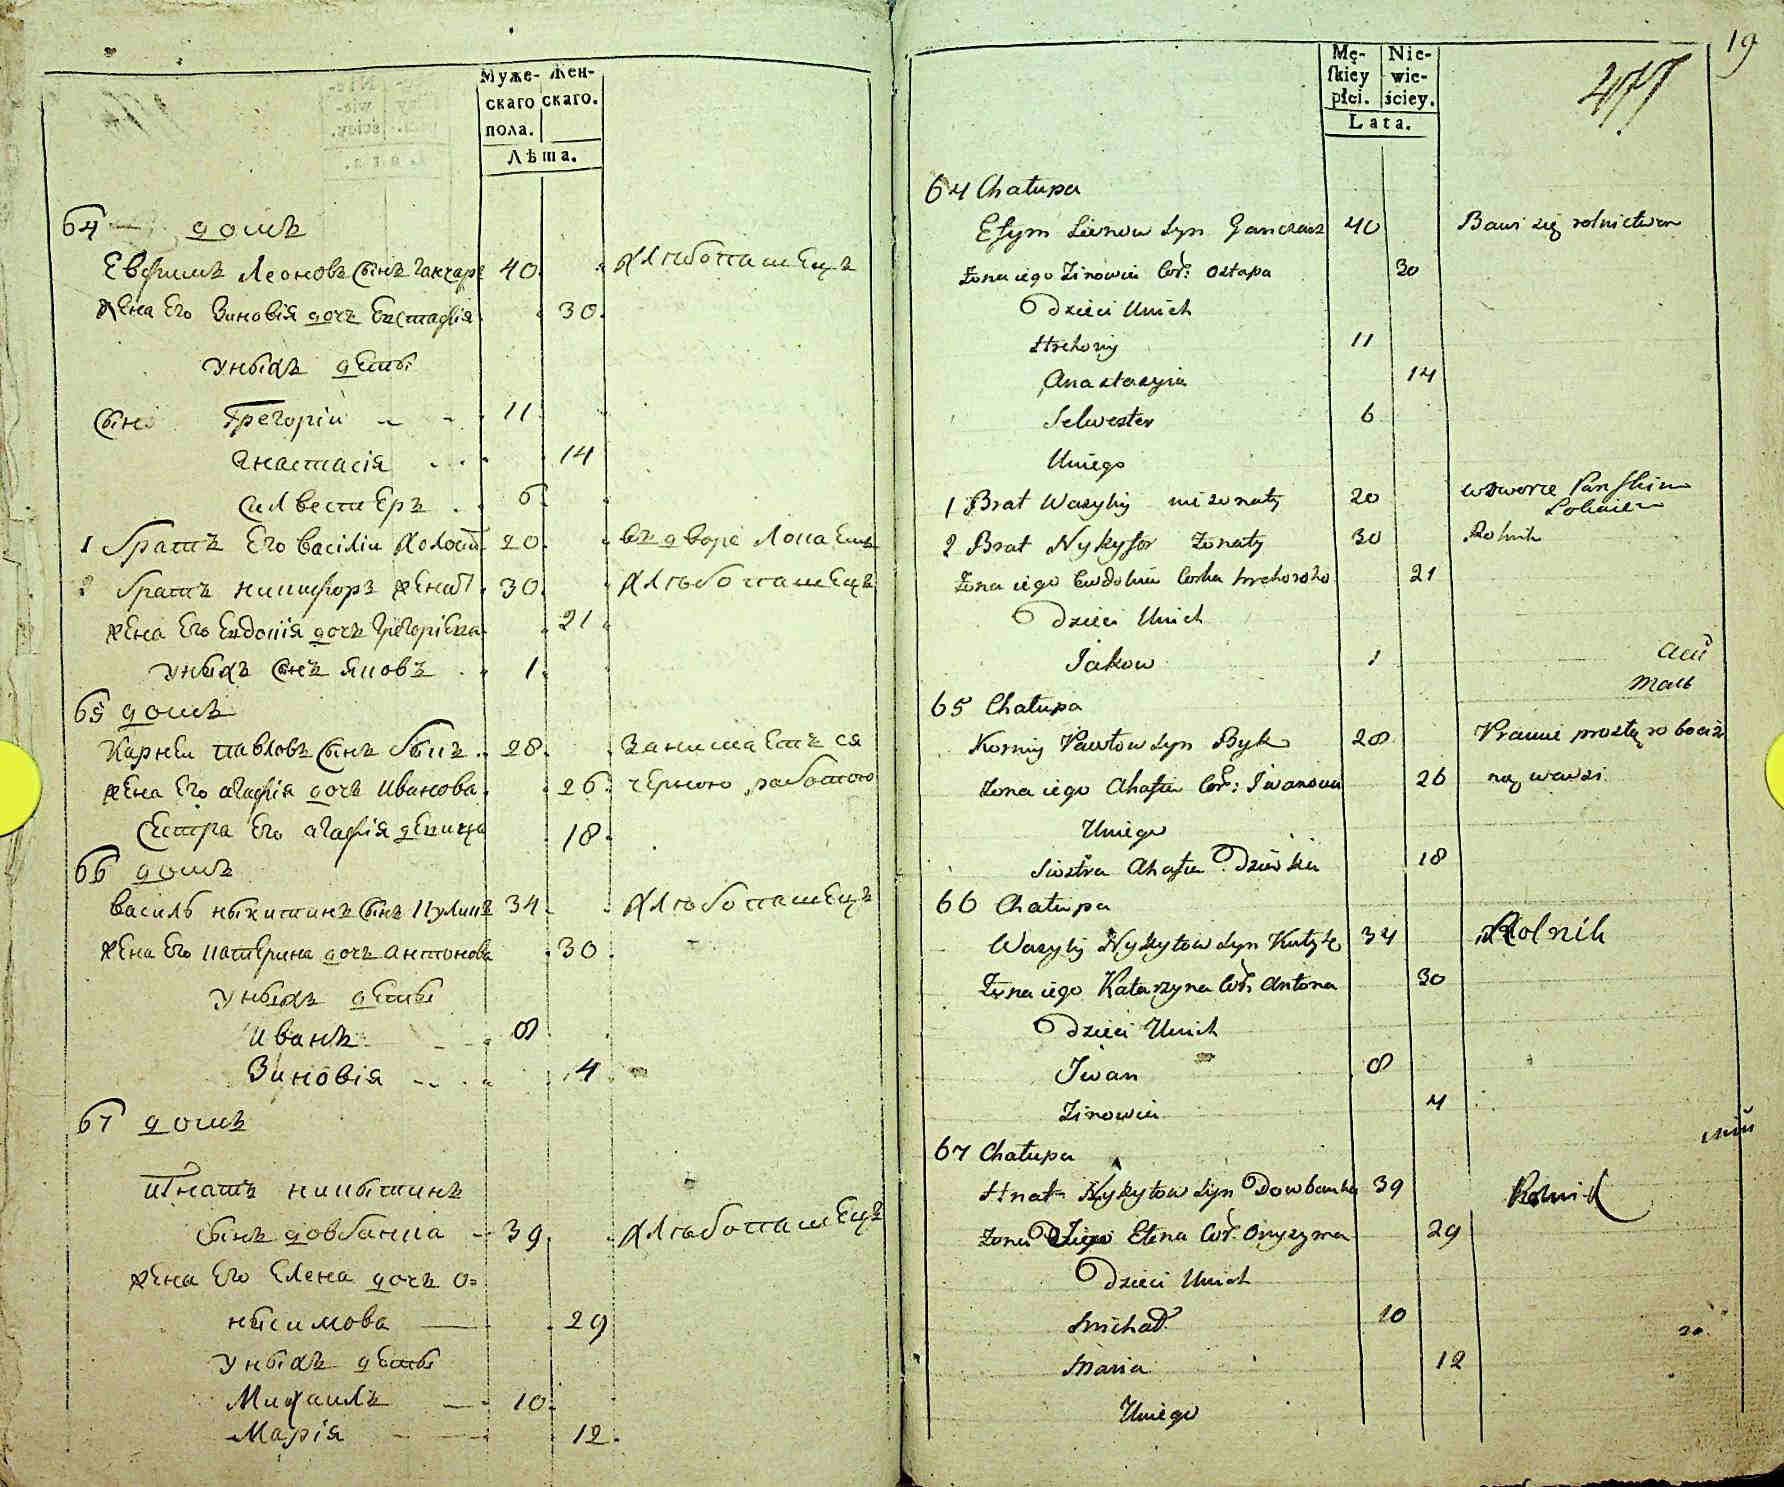 Муже- Жен-
скаго скаго.
пола.
Лѣта.
64 домъ
Евфимъ Леоновъ сынъ Ганчаръ 40 хлѣбопашецъ
жена его Зиновія дочъ Евстафія 30
унихъ дети
сынъ Григорій 11
Анастасія 14
Силвестеръ 6
1 братъ его Василій холостъ 20 въ дворе
2 братъ Никифоръ женатъ 30 хлѣбопашецъ
жена его Евдокія дочъ Григоріева 21
унихъ сынъ Яковъ 1
65 домъ
Карней Павловъ сынъ Быкъ 28 занимаетъся
жена его Агафія дочъ Иванова 26 черною работою
сестра его Агафія девица 18
66 домъ
Василь Никитинъ сынъ Куликъ 34 хлѣбопашецъ
жена его Катерина дочъ Антонова 30
унихъ дети
Иванъ 8
Зиновія 4
67 домъ
Игнатъ Никитинъ
сынъ Довбанка 39 хлѣбопашецъ
жена его Елена дочъ О=
нисимова 29
унихъ дети
Михаилъ 10
Марія 12
19
Mę- Nie-
skiey wie-
płci. ściey.
Lata.
64 Chałupa
Efym Leonow Syn Ganczarz 40 Bawi się rolnictwem
Żona iego Zinowia Cór: Ostapa 30
Dzieci Unich
Hrehory 11
Anastazyia 14
Selwester 6
Uniego
1 Brat Wasyly nie żonaty 20 wdworze Pańskim
2 Brat Nykyfor żonaty 30 Rolnik
Żona iego Ewdokia Corka Hrehorego 21
Dzieci Unich
Jakow 1
65 Chałupa
Korniy Pawłow Syn Byk 28 Prawie prostą robocizną
Żona iego Ahafia Cor: Iwanowa 26
Uniego
Siostra Ahafia Dziewka 18
66 Chałupa
Wasyly Nykytow Syn Kulyk 34 Rolnik
Żona iego Katarzyna Cór. Antona 30
Dzieci Unich
Iwan 8
Zinowia 4
67 Chałupa
Hnat Nykytow Syn Dowbanka 39 Rolnik
Żona iego Elena Cór. Onyszyma 29
Dzieci Unich
Michał 10
Maria 12
Uniego